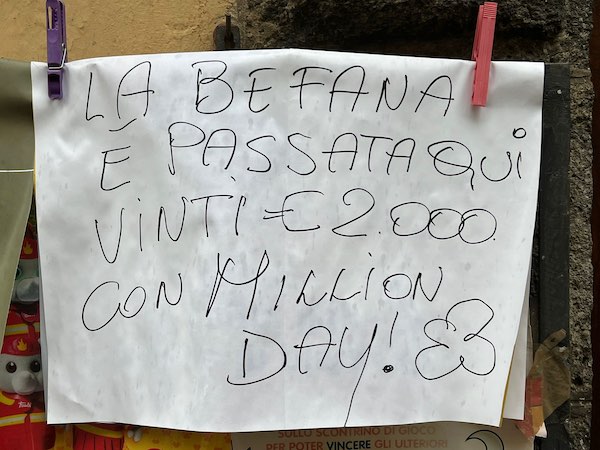 LA BEFANA
É PASSATA QUI
VINTI = € 2.000.
CON MILLION
DAY!
SULLO SCONTRINO DI GIOCO
PER POTER VINCERE GLI ULTERIORI